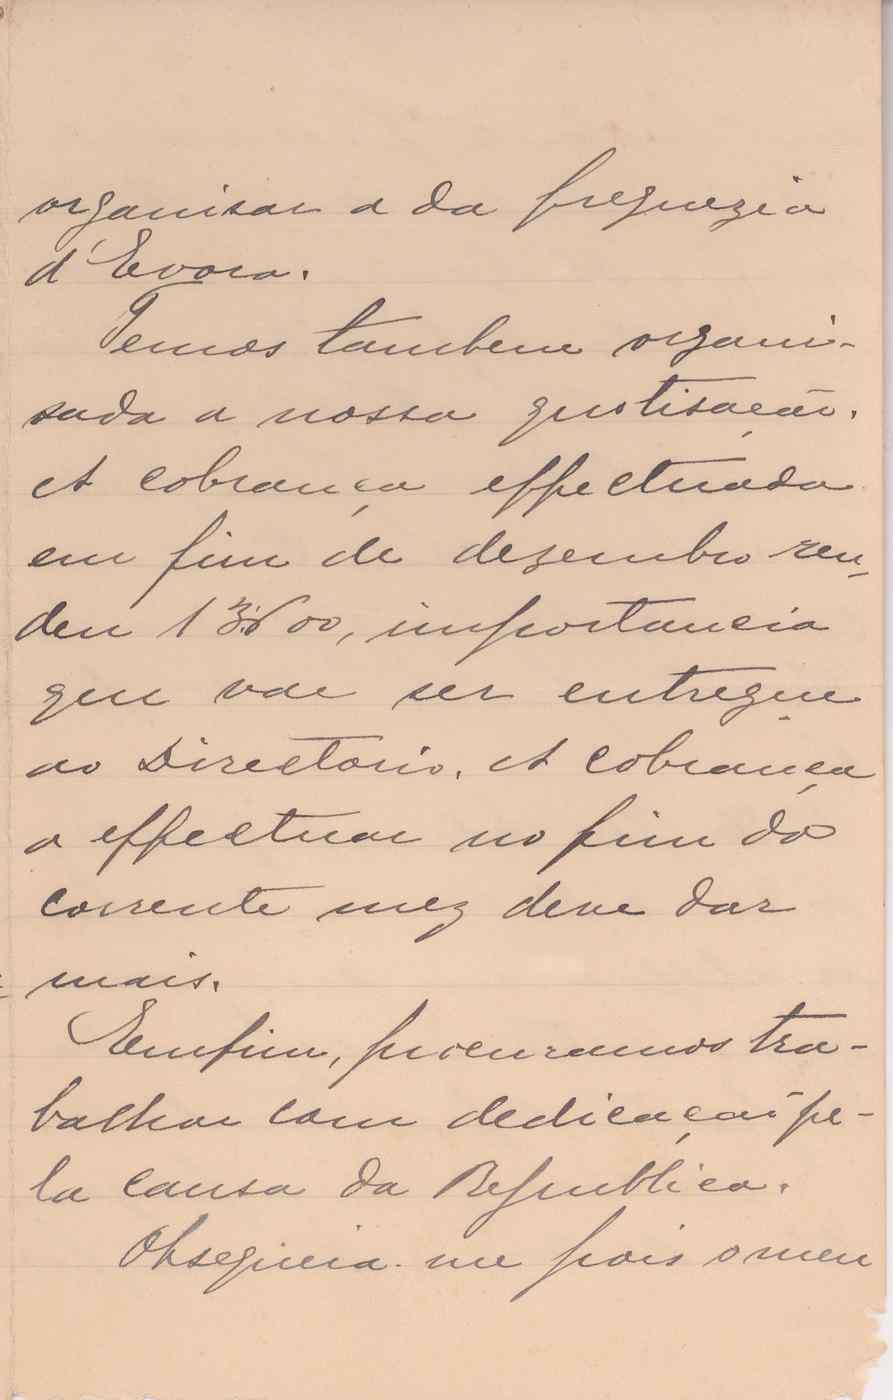 organisar a da freguezia
d'Evora.
Temos tambem organi-
sada a nossa quotisação.
A cobrança effectuada
em fim de dezembro ren-
deu importancia
que vae ser entregue
ao Directorio. A cobrança
a effectuar no fim do
corrente mez deve dar
mais.
Emfim, procuramos tra-
balhar com dedicação pe-
la causa da Republica.
Obsequeia-me pois o meu